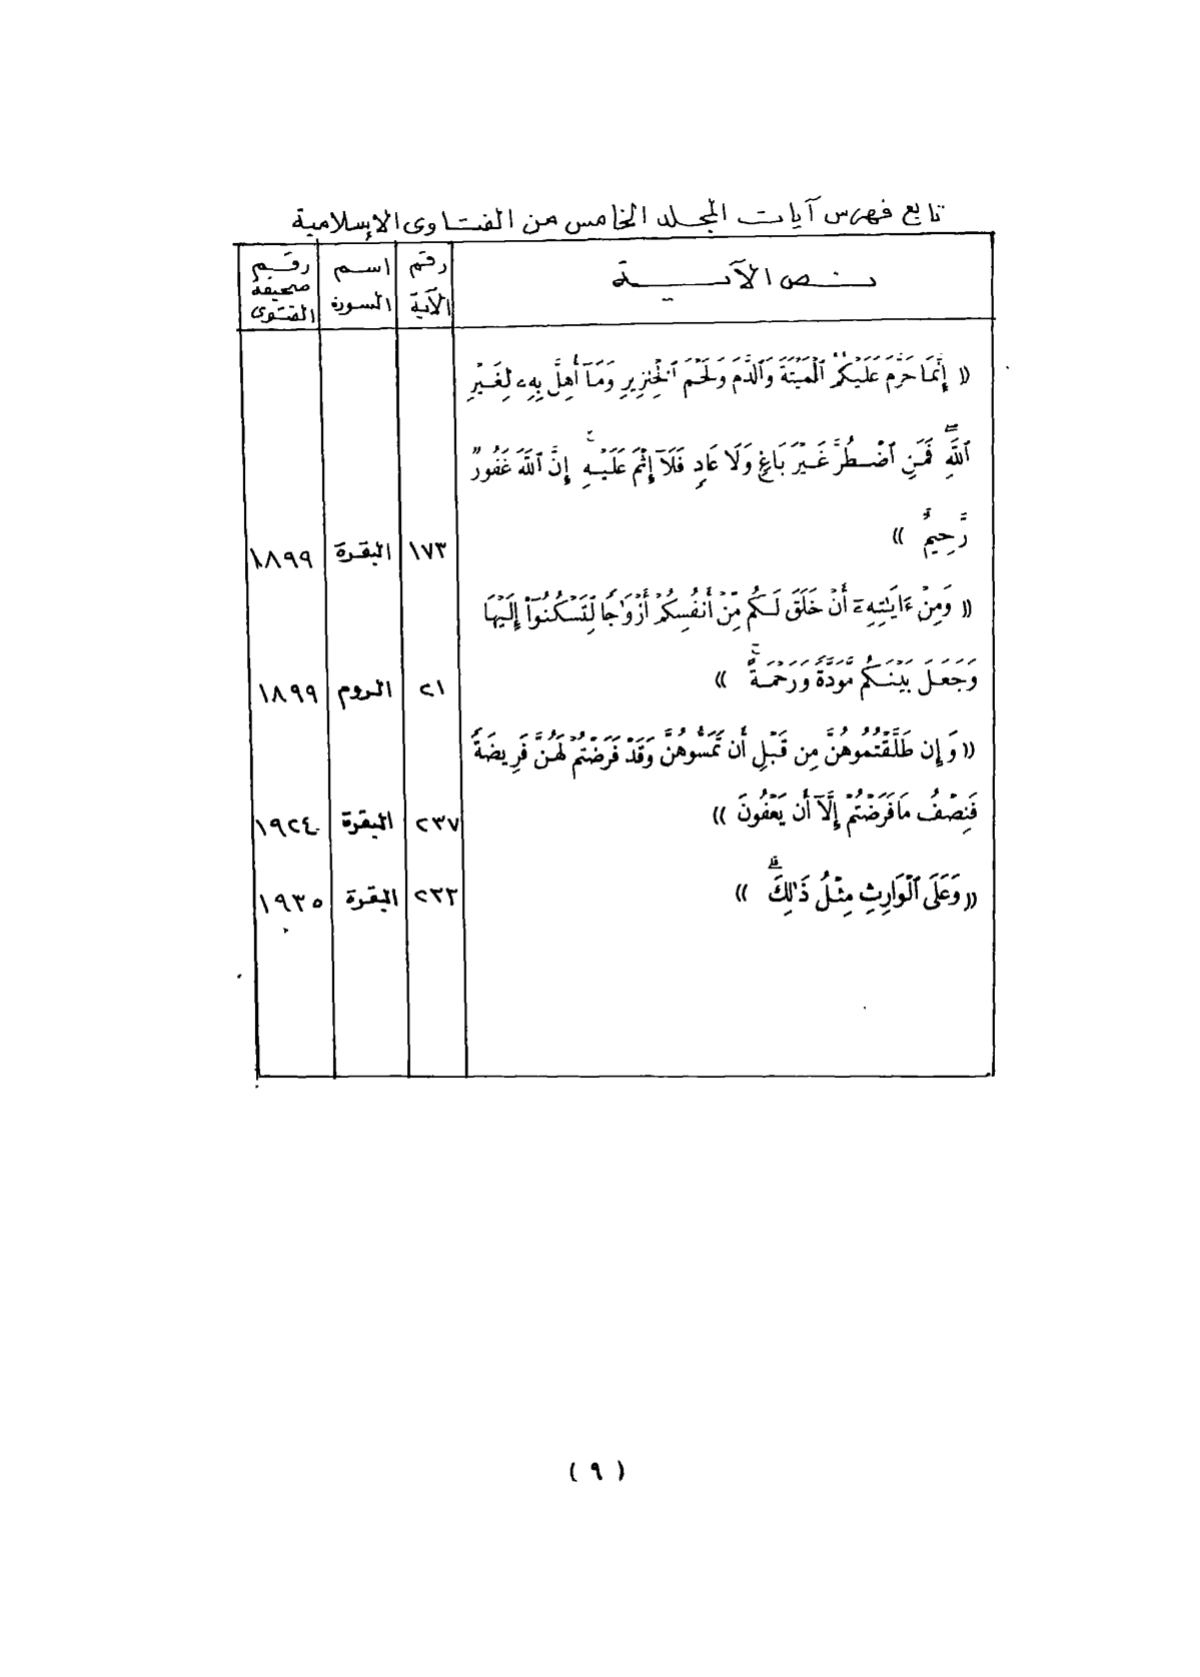 تابع فهرس آيات المجلد الخامس من الفتاوى الإسلامية
نص الآية
رقم الآية
اسم السورة
رقم صحيفة الفتوى
(( إِنَّمَا حَرَّمَ عَلَيْكُمُ ٱلْمَيْتَةَ وَٱلدَّمَ وَلَحْمَ ٱلْخِنزِيرِ وَمَآ أُهِلَّ بِهِۦ لِغَيْرِ
ٱللَّهِۖ فَمَنِ ٱضْطُرَّ غَيْرَ بَاغٍ وَلَا عَادٍ فَلَآ إِثْمَ عَلَيْهِۚ إِنَّ ٱللَّهَ غَفُورٌ
رَّحِيمٌ )) ١٧٣ البقرة ١٨٩٩
(( وَمِنْ ءَايَـٰتِهِۦٓ أَنْ خَلَقَ لَكُم مِّنْ أَنفُسِكُمْ أَزْوَٰجًا لِّتَسْكُنُوٓا۟ إِلَيْهَا
وَجَعَلَ بَيْنَكُم مَّوَدَّةً وَرَحْمَةًۚ )) ٢١ الروم ١٨٩٩
(( وَإِن طَلَّقْتُمُوهُنَّ مِن قَبْلِ أَن تَمَسُّوهُنَّ وَقَدْ فَرَضْتُمْ لَهُنَّ فَرِيضَةً
فَنِصْفُ مَا فَرَضْتُمْ إِلَّآ أَن يَعْفُونَ )) ٢٣٧ البقرة ١٩٢٤
(( وَعَلَى ٱلْوَارِثِ مِثْلُ ذَٰلِكَۗ )) ٢٣٣ البقرة ١٩٣٥
( ٩ )